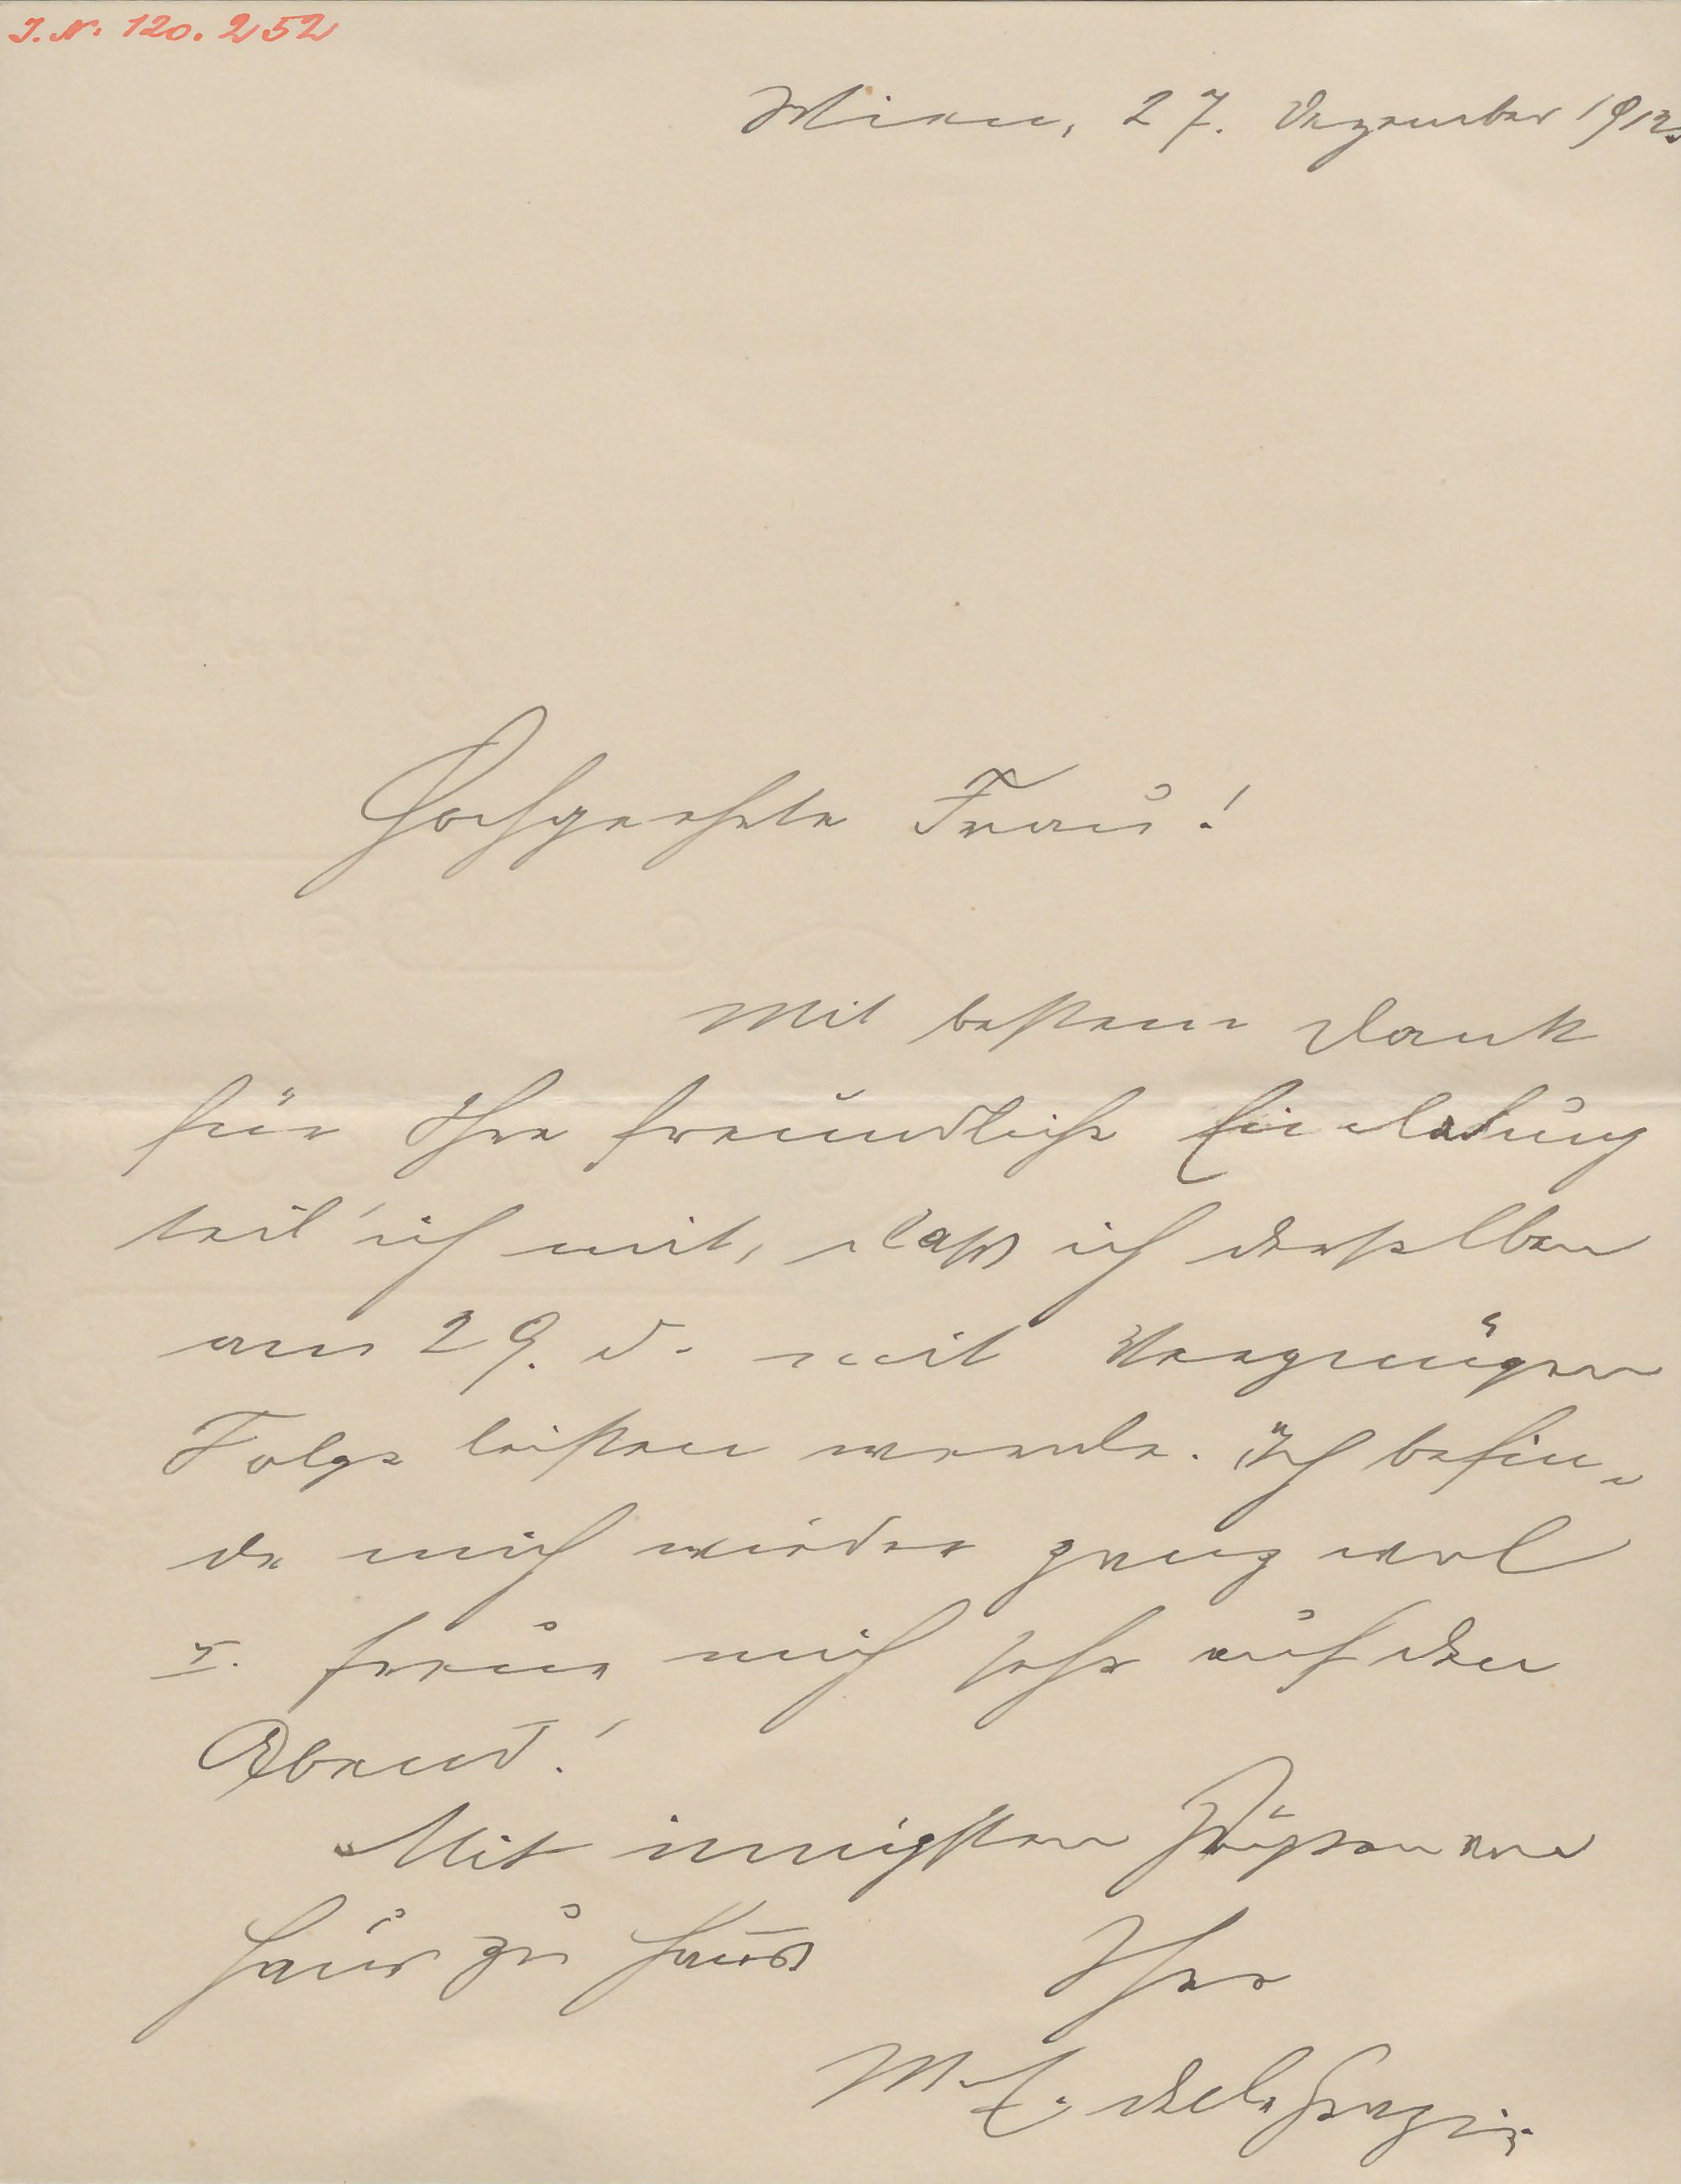 J. N. 120.252
Wien, 27. Dezember 1912.
Hochgeehrte Frau!
Mit bestem Dank
für Ihre freundliche Einladung
teil' ich mit, dass ich derselben
am 29. d. mit Vergnügen
Folge leisten werde. Ich befin-
de mich wieder ganz wol
u. freue mich sehr auf den
Abend!
Mit innigsten Grüssen von
Haus zu Haus Ihre
M. E. delle Grazie